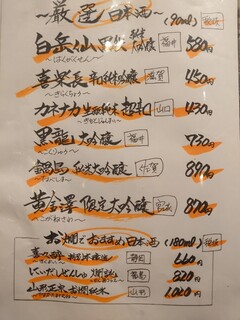 ～厳選日本酒～ (90ml) 税抜
白岳仙 純米大吟醸 福井 580円
～はくがくせん～
喜楽長 純米吟醸 滋賀 450円
～きらくちょう～
カネナカ 生酛純米 超辛口 山口 430円
黒龍 大吟醸 福井 730円
～こくりゅう～
鍋島 純米大吟醸 佐賀 890円
～なべしま～
黄金澤 限定大吟醸 宮城 890円
～こがねさわ～
お燗でおすすめ日本酒 (180ml) 税抜
喜久醉 特別本醸造 静岡 660円
にいだしぜんしゅ 燗誂 福島 820円
山形正宗 お燗純米 山形 1,020円